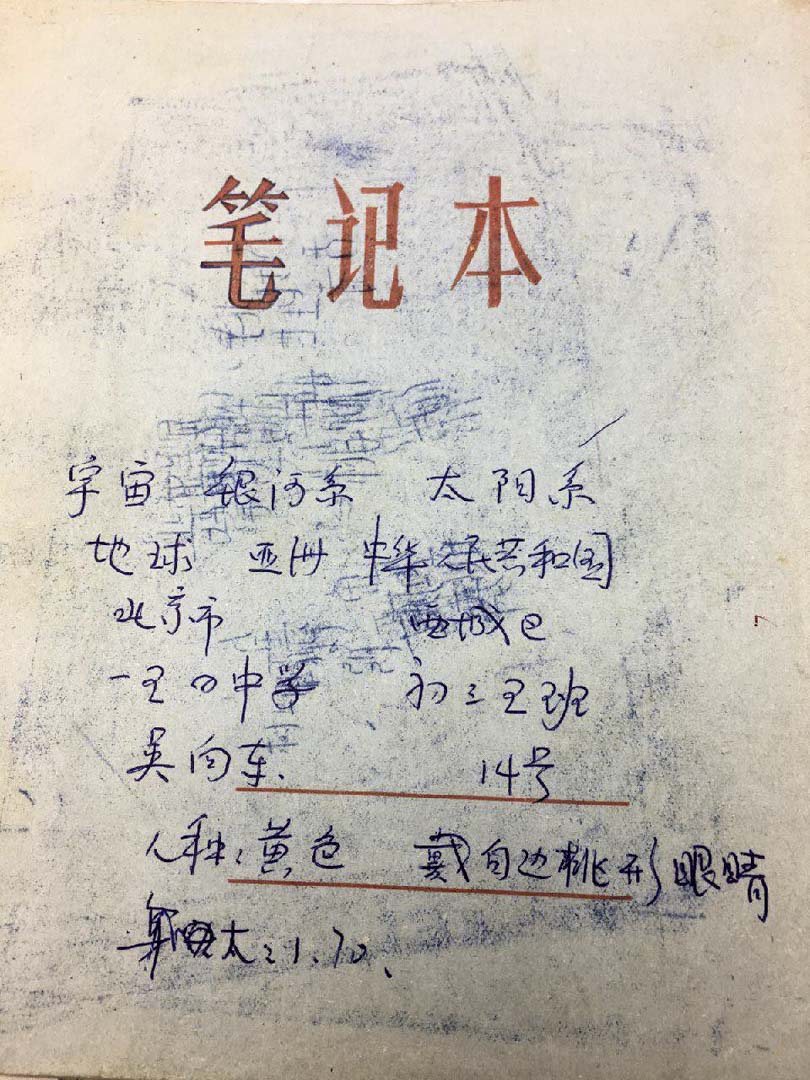 笔记本
宇宙 银河系 太阳系
地球 亚洲 中华人民共和国
北京市 西城区
一五四中学 初三五班
吴向东 14号
人种:黄色 戴白边桃形眼睛
太:1.70、